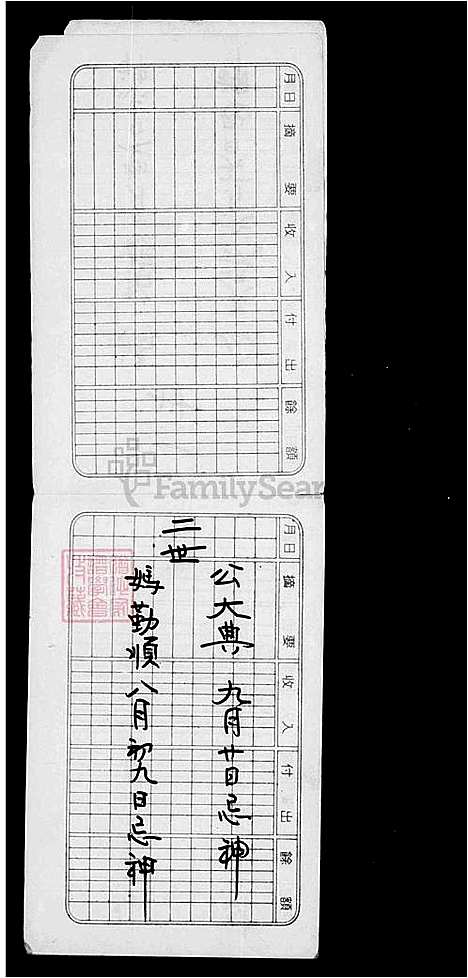 月日
摘要
收入
付出
餘額
FamilySear
月日
摘要
收入
付出
餘額
公大典 九月廿日忌神
二世
媽勤順 八月初九日忌神